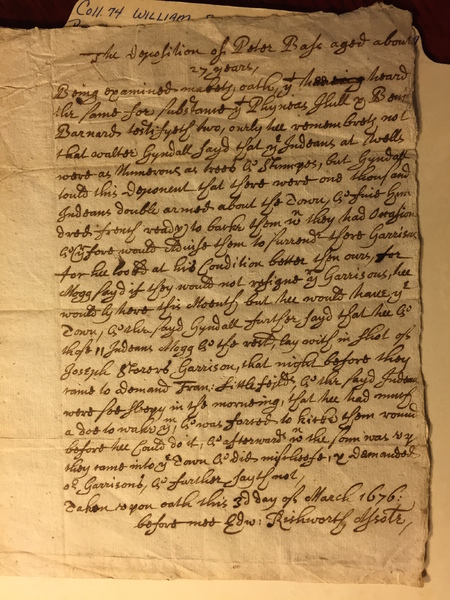 Coll. 74 WILLIAM
The deposition of Peter Bass aged about
27 years,
Being examined maketh oath, yt hee heard
the same for substance yt Phyneas Hull & Ben:
Barnard testifyeth two, onely hee remembrets not
that Walter Gyndall sayd that ye Indeans at Wells
were as Numerous as trees & stumpes, but Gyndall
tould this Deponent that there were one thousand
Indeans double armed about the Town, & five hun
dred French ready to backe them wn they had Occasion
& yrfore would Advise them to surrendr there Garrison
for hee looked at his Condition better then ours, for
Mogg sayd if they would not resigne yr Garrisons, hee
would ly here this Moenth but hee would have ye
Town, & the sayd Gyndall further sayd that hee &
those 11 Indeans Mogg & the rest, lay with in shot of
Joseph Storers Garrison, that night before they
came to demand Fran: Littlefejlds, & the sayd Indeans
were soe sleepy in the morneing, that hee had much
a doe to wake ym, & was forced to kicke them
before hee Could do it, & afterwards wn the sonn was up
they came into ye Town & did mischeefe, & demanded
or Garrisons, & further sayth not,
Taken upon oath this 3d day of March 1676:
before mee Edw: Rishworth Assote,